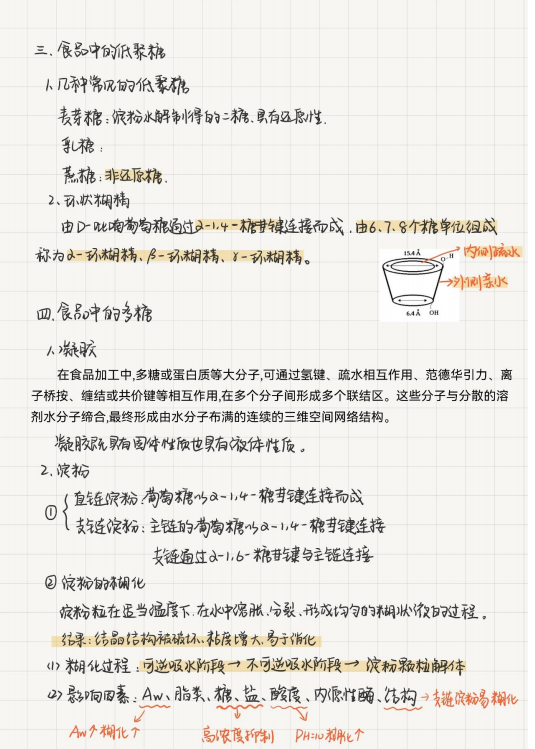 三.食品中的低聚糖
1.几种常见的低聚糖
麦芽糖:淀粉水解制得的二糖.具有还原性.
乳糖:
蔗糖:非还原糖.
2.环状糊精
由D-吡喃葡萄糖通过α-1.4-糖苷键连接而成.由6、7、8个糖单位组成
称为α-环糊精、β-环糊精、γ-环糊精。
15.4 Å
O-H
内侧疏水
外侧亲水
6.4 Å
OH
四.食品中的多糖
1.凝胶
在食品加工中,多糖或蛋白质等大分子,可通过氢键、疏水相互作用、范德华引力、离
子桥按、缠结或共价键等相互作用,在多个分子间形成多个联结区。这些分子与分散的溶
剂水分子缔合,最终形成由水分子布满的连续的三维空间网络结构。
凝胶既具有固体性质也具有液体性质。
2.淀粉
①
直链淀粉:葡萄糖以α-1.4-糖苷键连接而成
支链淀粉:主链的葡萄糖以α-1.4-糖苷键连接
支链通过α-1.6-糖苷键与主链连接
②淀粉的糊化
淀粉粒在适当温度下.在水中溶胀、分裂、形成均匀的糊状液的过程。
结果:结晶结构被破坏.黏度增大.易于消化
(1)糊化过程:可逆吸水阶段→不可逆吸水阶段→淀粉颗粒解体
(2)影响因素:Aw、脂类、糖、盐、酸度、内源性酶、结构→支链淀粉易糊化
Aw↑糊化↑
高浓度抑制
PH=10糊化↑